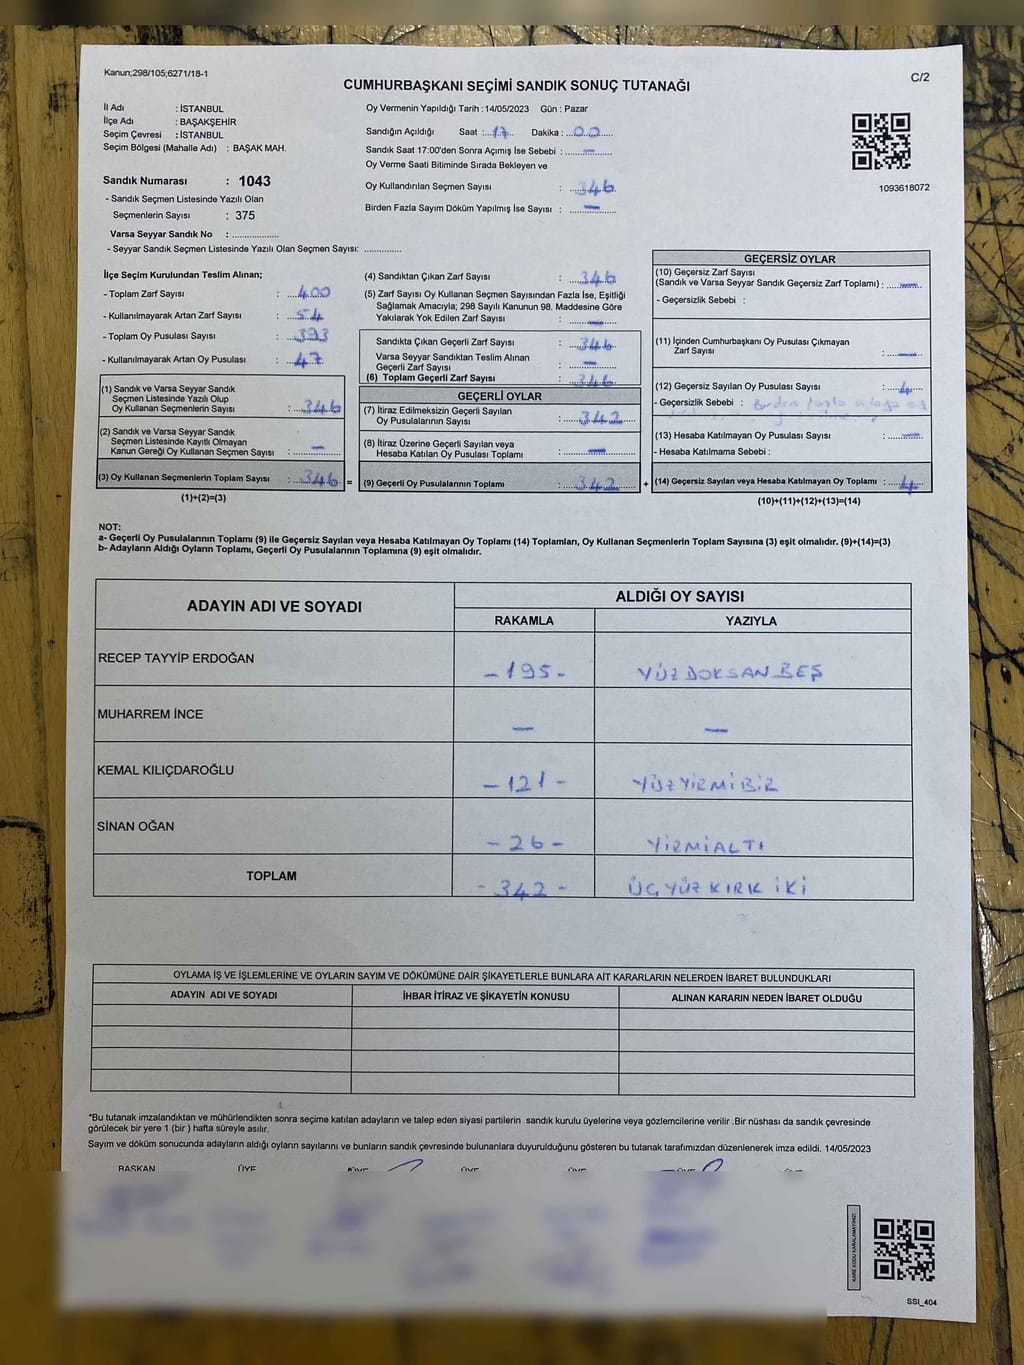 Kanun;298/105;6271/18-1
C/2
CUMHURBAŞKANI SEÇİMİ SANDIK SONUÇ TUTANAĞI
İl Adı : İSTANBUL
İlçe Adı : BAŞAKŞEHİR
Seçim Çevresi : İSTANBUL
Seçim Bölgesi (Mahalle Adı) : BAŞAK MAH.
Sandık Numarası : 1043
- Sandık Seçmen Listesinde Yazılı Olan
Seçmenlerin Sayısı : 375
Varsa Seyyar Sandık No : ..................
- Seyyar Sandık Seçmen Listesinde Yazılı Olan Seçmen Sayısı: ..............
Oy Vermenin Yapıldığı Tarih :14/05/2023 Gün : Pazar
Sandığın Açıldığı Saat : 17 Dakika : 00
Sandık Saat 17:00'den Sonra Açımış İse Sebebi : —
Oy Verme Saati Bitiminde Sırada Bekleyen ve
Oy Kullandırılan Seçmen Sayısı : 346
Birden Fazla Sayım Döküm Yapılmış İse Sayısı : —
1093618072
İlçe Seçim Kurulundan Teslim Alınan;
- Toplam Zarf Sayısı : 400
- Kullanılmayarak Artan Zarf Sayısı : 54
- Toplam Oy Pusulası Sayısı : 393
- Kullanılmayarak Artan Oy Pusulası : 47
(1) Sandık ve Varsa Seyyar Sandık
Seçmen Listesinde Yazılı Olup
Oy Kullanan Seçmenlerin Sayısı : 346
(2) Sandık ve Varsa Seyyar Sandık
Seçmen Listesinde Kayıtlı Olmayan
Kanun Gereği Oy Kullanan Seçmen Sayısı : —
(3) Oy Kullanan Seçmenlerin Toplam Sayısı : 346 =
(1)+(2)=(3)
(4) Sandıktan Çıkan Zarf Sayısı : 346
(5) Zarf Sayısı Oy Kullanan Seçmen Sayısından Fazla İse, Eşitliği
Sağlamak Amacıyla; 298 Sayılı Kanunun 98. Maddesine Göre
Yakılarak Yok Edilen Zarf Sayısı : —
Sandıkta Çıkan Geçerli Zarf Sayısı : 346
Varsa Seyyar Sandıktan Teslim Alınan
Geçerli Zarf Sayısı : —
(6) Toplam Geçerli Zarf Sayısı : 346
GEÇERLİ OYLAR
(7) İtiraz Edilmeksizin Geçerli Sayılan
Oy Pusulalarının Sayısı : 342
(8) İtiraz Üzerine Geçerli Sayılan veya
Hesaba Katılan Oy Pusulası Toplamı : —
(9) Geçerli Oy Pusulalarının Toplamı : 342 +
GEÇERSİZ OYLAR
(10) Geçersiz Zarf Sayısı
(Sandık ve Varsa Seyyar Sandık Geçersiz Zarf Toplamı) : —
- Geçersizlik Sebebi :
(11) İçinden Cumhurbaşkanı Oy Pusulası Çıkmayan
Zarf Sayısı : —
(12) Geçersiz Sayılan Oy Pusulası Sayısı : 4
- Geçersizlik Sebebi : Birden fazla
(13) Hesaba Katılmayan Oy Pusulası Sayısı : —
- Hesaba Katılmama Sebebi :
(14) Geçersiz Sayılan veya Hesaba Katılmayan Oy Toplamı : 4
(10)+(11)+(12)+(13)=(14)
NOT:
a- Geçerli Oy Pusulalarının Toplamı (9) ile Geçersiz Sayılan veya Hesaba Katılmayan Oy Toplamı (14) Toplamları, Oy Kullanan Seçmenlerin Toplam Sayısına (3) eşit olmalıdır. (9)+(14)=(3)
b- Adayların Aldığı Oyların Toplamı, Geçerli Oy Pusulalarının Toplamına (9) eşit olmalıdır.
ADAYIN ADI VE SOYADI
ALDIĞI OY SAYISI
RAKAMLA YAZIYLA
RECEP TAYYİP ERDOĞAN -195- YÜZ DOKSAN BEŞ
MUHARREM İNCE — —
KEMAL KILIÇDAROĞLU -121- YÜZ YİRMİ BİR
SİNAN OĞAN -26- YİRMİALTI
TOPLAM -342- ÜÇ YÜZ KIRK İKİ
OYLAMA İŞ VE İŞLEMLERİNE VE OYLARIN SAYIM VE DÖKÜMÜNE DAİR ŞİKAYETLERLE BUNLARA AİT KARARLARIN NELERDEN İBARET BULUNDUKLARI
ADAYIN ADI VE SOYADI İHBAR İTİRAZ VE ŞİKAYETİN KONUSU ALINAN KARARIN NEDEN İBARET OLDUĞU
*Bu tutanak imzalandıktan ve mühürlendikten sonra seçime katılan adayların ve talep eden siyasi partilerin sandık kurulu üyelerine veya gözlemcilerine verilir .Bir nüshası da sandık çevresinde
görülecek bir yere 1 (bir ) hafta süreyle asılır.
Sayım ve döküm sonucunda adayların aldığı oyların sayılarını ve bunların sandık çevresinde bulunanlara duyurulduğunu gösteren bu tutanak tarafımızdan düzenlenerek imza edildi. 14/05/2023
BAŞKAN ÜYE ÜYE ÜYE ÜYE ÜYE ÜYE
KARE KODU KARALAMAYINIZ!
SSI_404